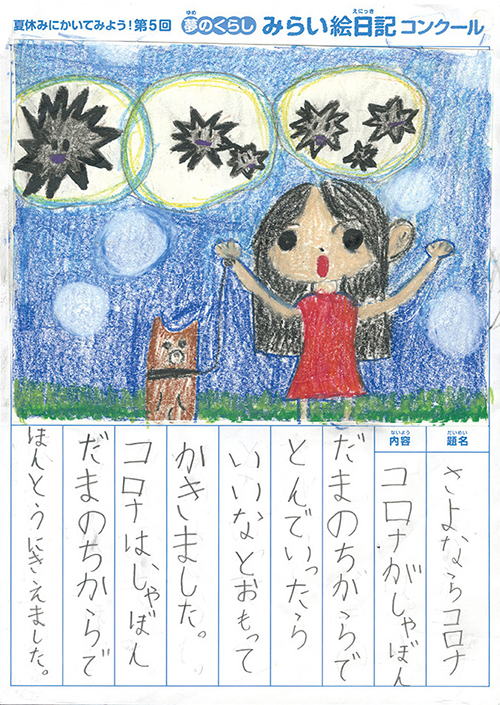 夏休みにかいてみよう!第5回 夢のくらし みらい絵日記コンクール
ゆめ
えにっき
だいめい
題名
さよならコロナ
ないよう
内容
コロナがしゃぼん
だまのちからで
とんでいったら
いいなとおもって
かきました。
コロナは、しゃぼん
だまのちからで
ほんとうにきえました。